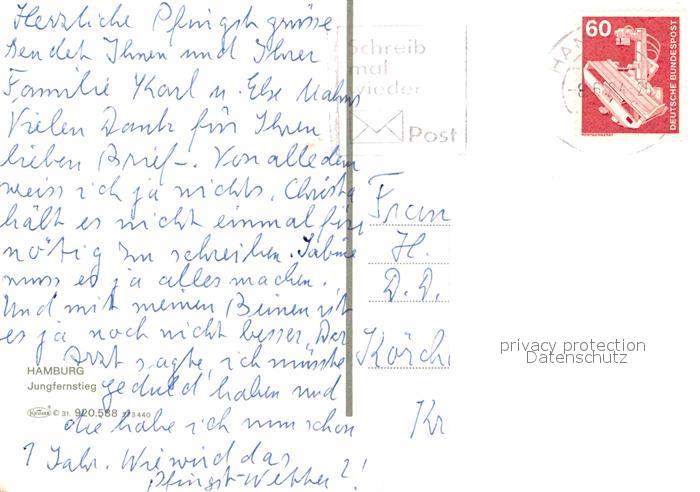 Herzliche Pfingstgrüsse
sendet Ihnen und Ihrer
Familie Karl u. Else
Vielen Dank für Ihren
lieben Brief. Von alledem
weiss ich ja nichts. Christa
hält es nicht einmal für
nötig zu schreiben. Sabine
muss es ja alles machen.
Und mit meinen Beinen ist
es ja noch nicht besser. Der
Arzt sagte, ich müsste
geduld haben und
die habe ich nun schon
1 Jahr. Wie wird das
Pfingst-Wetter?!
HAMBURG
Jungfernstieg
© 31. 920.588 773440
Schreib
mal
wieder
Post
60
DEUTSCHE BUNDESPOST
Frau
H.
D.D.
Kr
privacy protection
Datenschutz